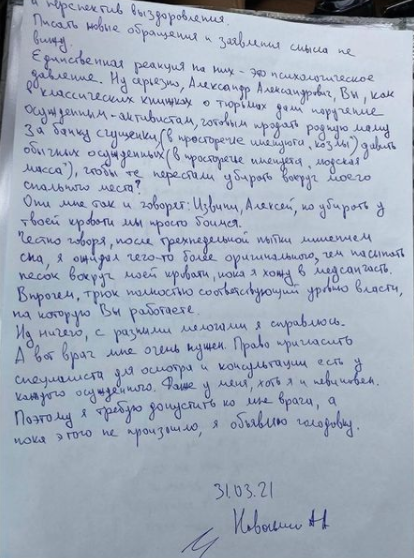 и перспектив выздоровления.
Писать новые обращения и заявления смысла не
вижу.
Единственная реакция на них - это психологическое
давление. Ну серьезно, Александр Александрович, Вы, как
в классических книжках о тюрьмах дали поручение
осужденным-активистам, готовым продать родную маму
за банку сгущенки, (в просторечье именуются "козлы") давить
обычных осужденных (в просторечье именуется "людская
масса"), чтобы те перестали убирать вокруг моего
спального места?
Они мне так и говорят: Извини, Алексей, но убирать у
твоей кровати мы просто боимся.
Честно говоря, после трехнедельной пытки лишением
сна, я ожидал чего-то более оригинального, чем насыпать
песок вокруг моей кровати, пока я хожу в медсанчасть.
Впрочем, трюк полностью соответствующий уровню власти,
на которую Вы работаете.
Ну ничего, с разными мелочами я справлюсь.
А вот врач мне очень нужен. Право пригласить
специалиста для осмотра и консультации есть у
каждого осужденного. Даже у меня, хоть я и невиновен.
Поэтому я требую допустить ко мне врача, а
пока этого не произошло, я объявляю голодовку.
31.03.21
Навальный АА